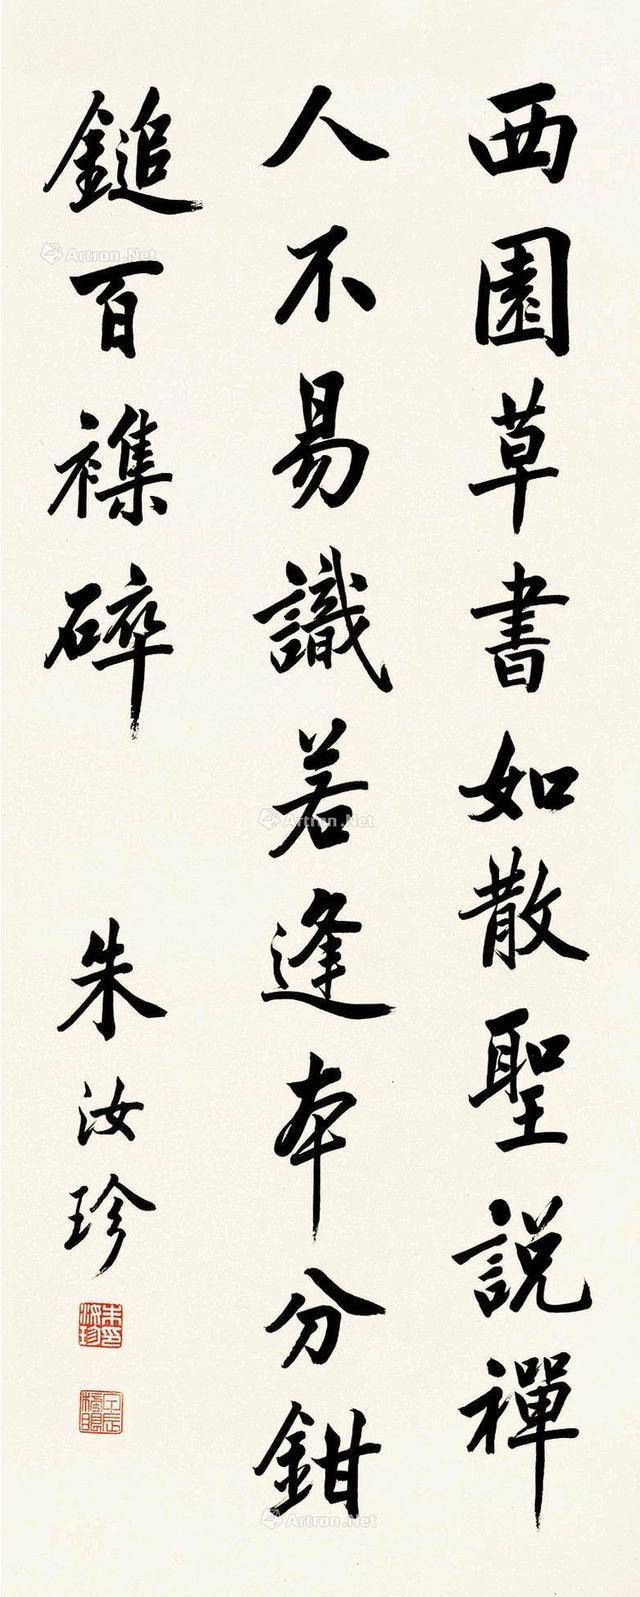 西園草書如散聖說禪
人不易識若逢本分鉗
鎚百襍碎
朱汝珍
朱汝珍印
甲辰榜眼
Artron.Net
Artron.Net
Artron.Net